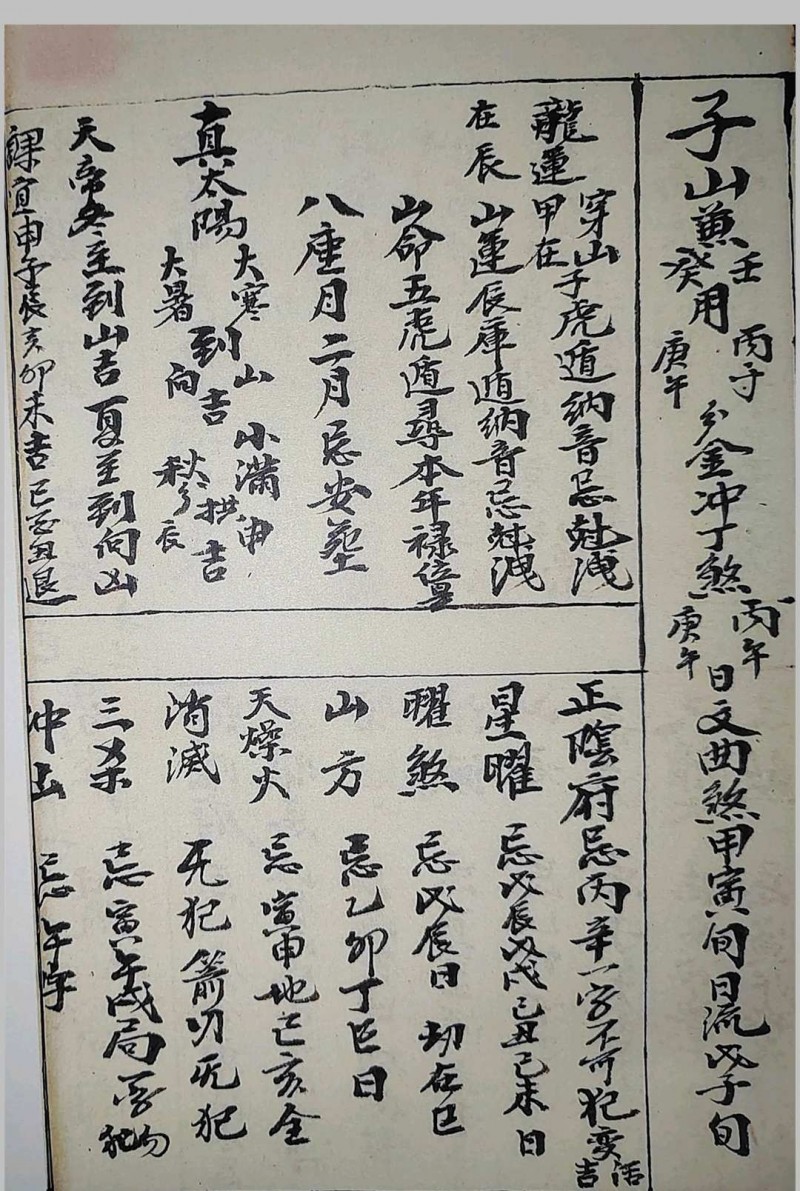 子山兼壬癸用丙子庚午分金冲丁煞丙午庚午日文曲煞甲寅旬日流戊子旬
龍運甲在穿山子虎遁納音忌尅洩
在辰山運辰庫遁納音忌尅洩
山命五虎遁尋本年禄位
八座月二月忌安葬
真太陽大寒到山吉小滿申拱吉
大暑向秋分辰
天帝冬至到山吉夏至到向凶
課宜申子辰亥卯未吉巳酉丑退
正陰府忌丙辛一字不可犯变活吉
星曜忌戊辰戊戌己丑己未日
曜煞忌戊辰日劫在巳
山方忌乙卯丁巳日
天燥火忌寅申地巳亥全
消滅无犯箭刃无犯
三杀忌寅午戌局勿犯
冲山忌午字